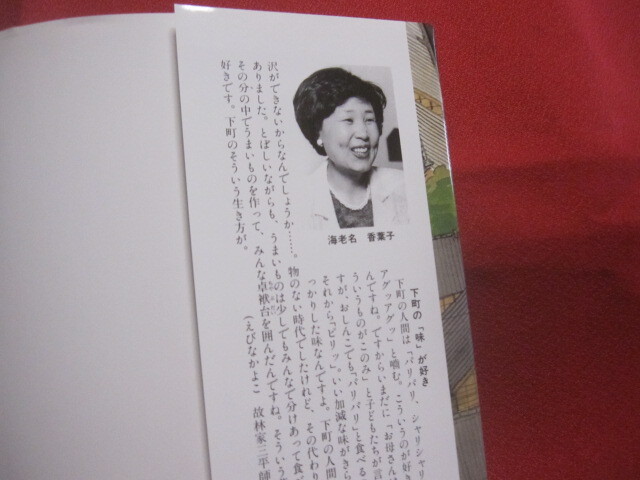 海老名　香葉子
下町の「味」が好き
下町の人間は「バリバリ、シャリシャリ
アグッアグッ」と噛む。こういうのが好き
んですね。ですからいまだに「お母さんは
ういうものがこのみ」と子どもたちが言
すが、おしんこでも「バリバリ」と食べるこ
それから「ピリッ」。いい加減な味がきら
っかりした味なんですよ。下町の人間
物のない時代でしたけれど、その代わり
沢ができないからなんでしょうか……。
ありました。とぼしいながらも、うまいものは少しでもみんなで分けあって食べ
その分の中でうまいものを作って、みんな卓袱台を囲んだんですね。そういう
好きです。下町のそういう生き方が。
（えびなかよこ　故林家三平師